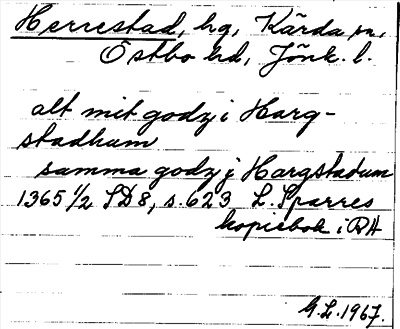 Herrestad, hg, Kärda sn,
Östbo hd, Jönk. l.
alt mit godz i Harg-
stadhum
samma godz j Hargstadum
1365 1/2 SD8, s. 623 L. Sparres
kopiebok i RA
G.L. 1967.